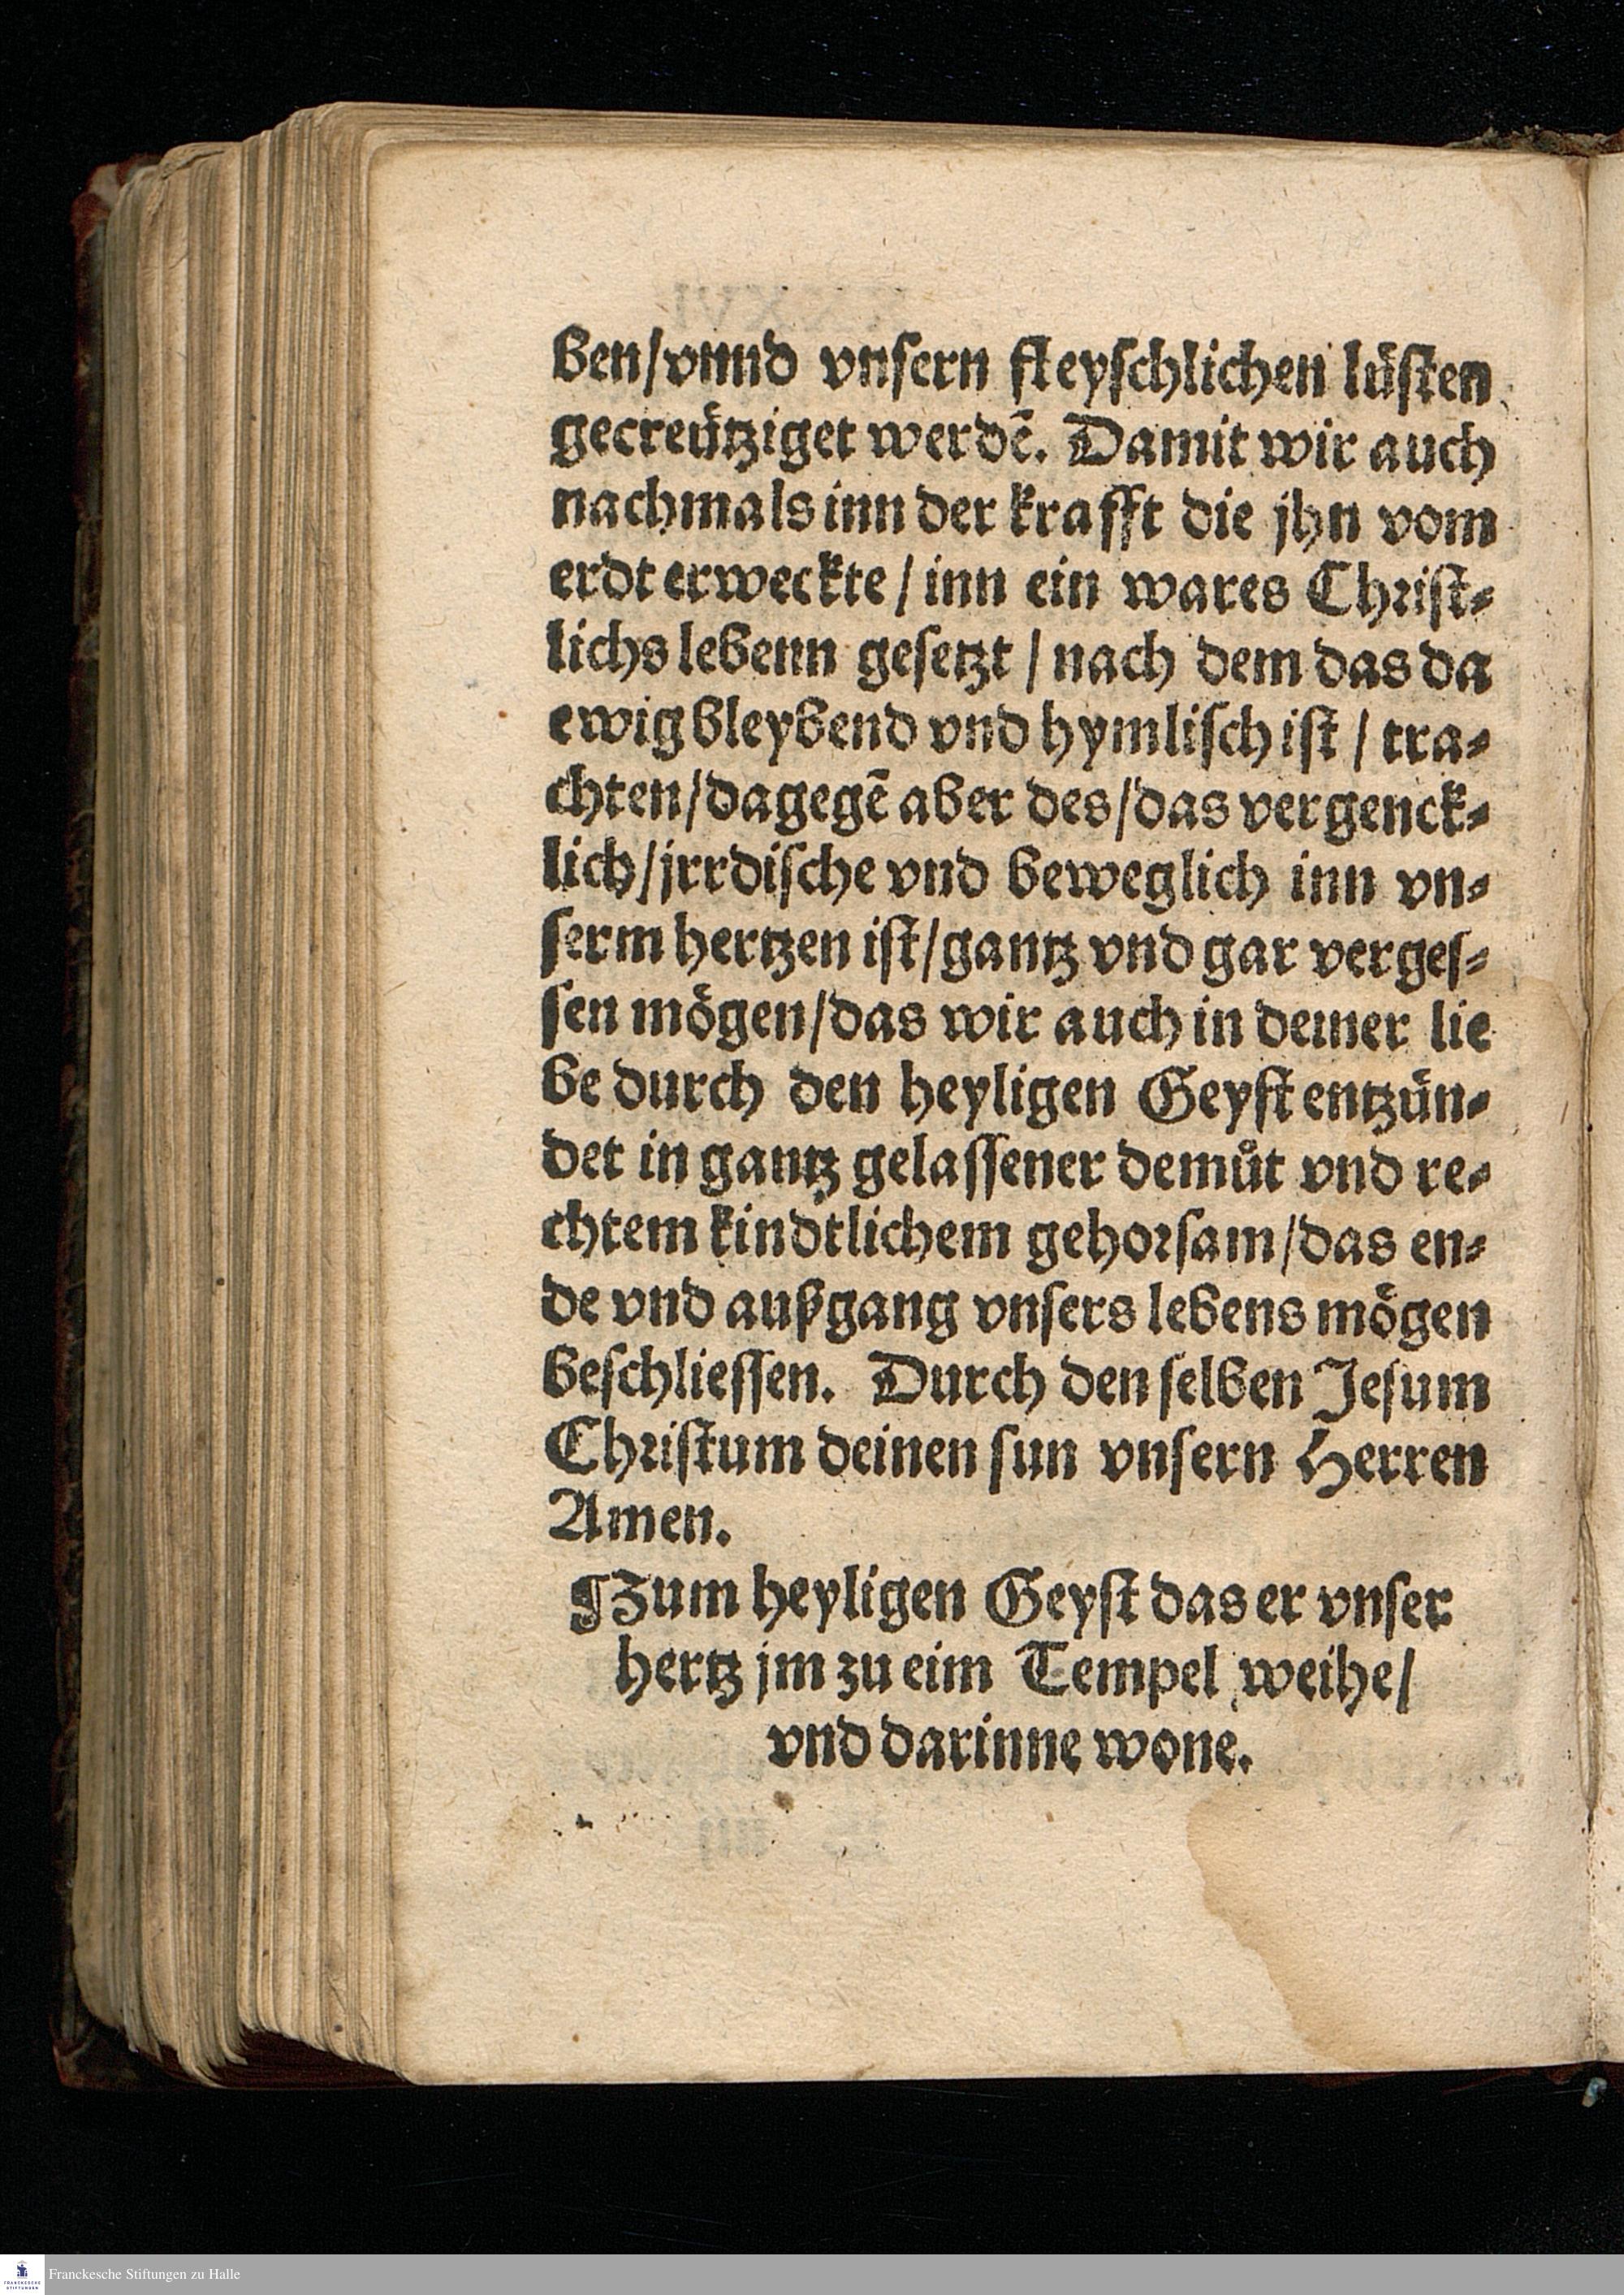 ben/vnnd vnsern fleyschlichen lüsten
gecreütziget werdẽ. Damit wir auch
nachmals inn der krafft die jhn vom
erdt erweckte/inn ein wares Christ-
lichs lebenn gesetzt/nach dem das da
ewig bleybend vnd hymlisch ist/tra-
chten/dagegẽ aber des/das vergenck-
lich/jrrdische vnd beweglich inn vn-
serm hertzen ist/gantz vnd gar verges-
sen mögen/das wir auch in deiner lie
be durch den heyligen Geyst entzün-
det in gantz gelassener demůt vnd re-
chtem kindtlichem gehorsam/das en-
de vnd außgang vnsers lebens mögen
beschliessen. Durch den selben Jesum
Christum deinen sun vnsern Herren
Amen.
¶Zum heyligen Geyst das er vnser
hertz jm zu eim Tempel weihe/
vnd darinne wone.
Franckesche Stiftungen zu Halle